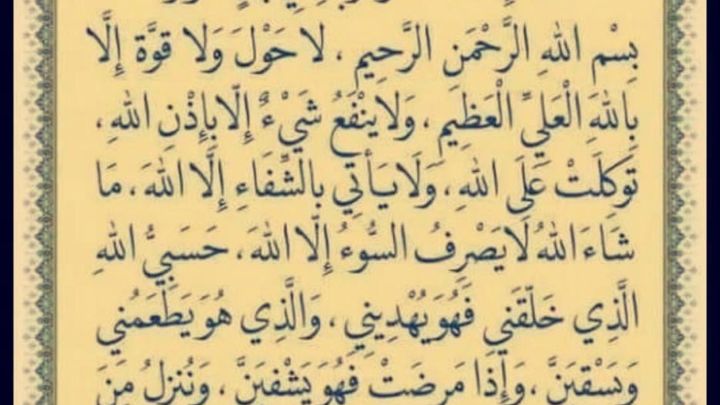 بِسْمِ اللهِ الرَّحْمَنِ الرَّحِيمِ ، لَا حَوْلَ وَلَا قُوَّةَ إِلَّا
بِاللهَ الْعَلِيِّ الْعَظِيمِ، وَلَا يَنْفَعُ شَيْءٌ إِلَّا بِإِذْنِ اللهِ،
تَوَكَلَتْ عَلَى اللهِ، وَلَا يَأْتِي بِالشِّفَاءِ إِلَّا اللهَ، مَا
شَاءَ اللهُ لَا يَصْرِفُ السُّوءُ إِلَّا اللهَ، حَسَبِيُّ اللهِ
الَّذِي خَلَّقَنِي فَهُوَ يُهْدِينِي ، وَالَّذِي هُوَ يَطْعَمُنِي
وَيَسْقِيَنَّ ، وَإِذَا مَرِضَتْ فَهُوَ يَشْفِيَنَّ ، وَنُنزِلُ مِنَ